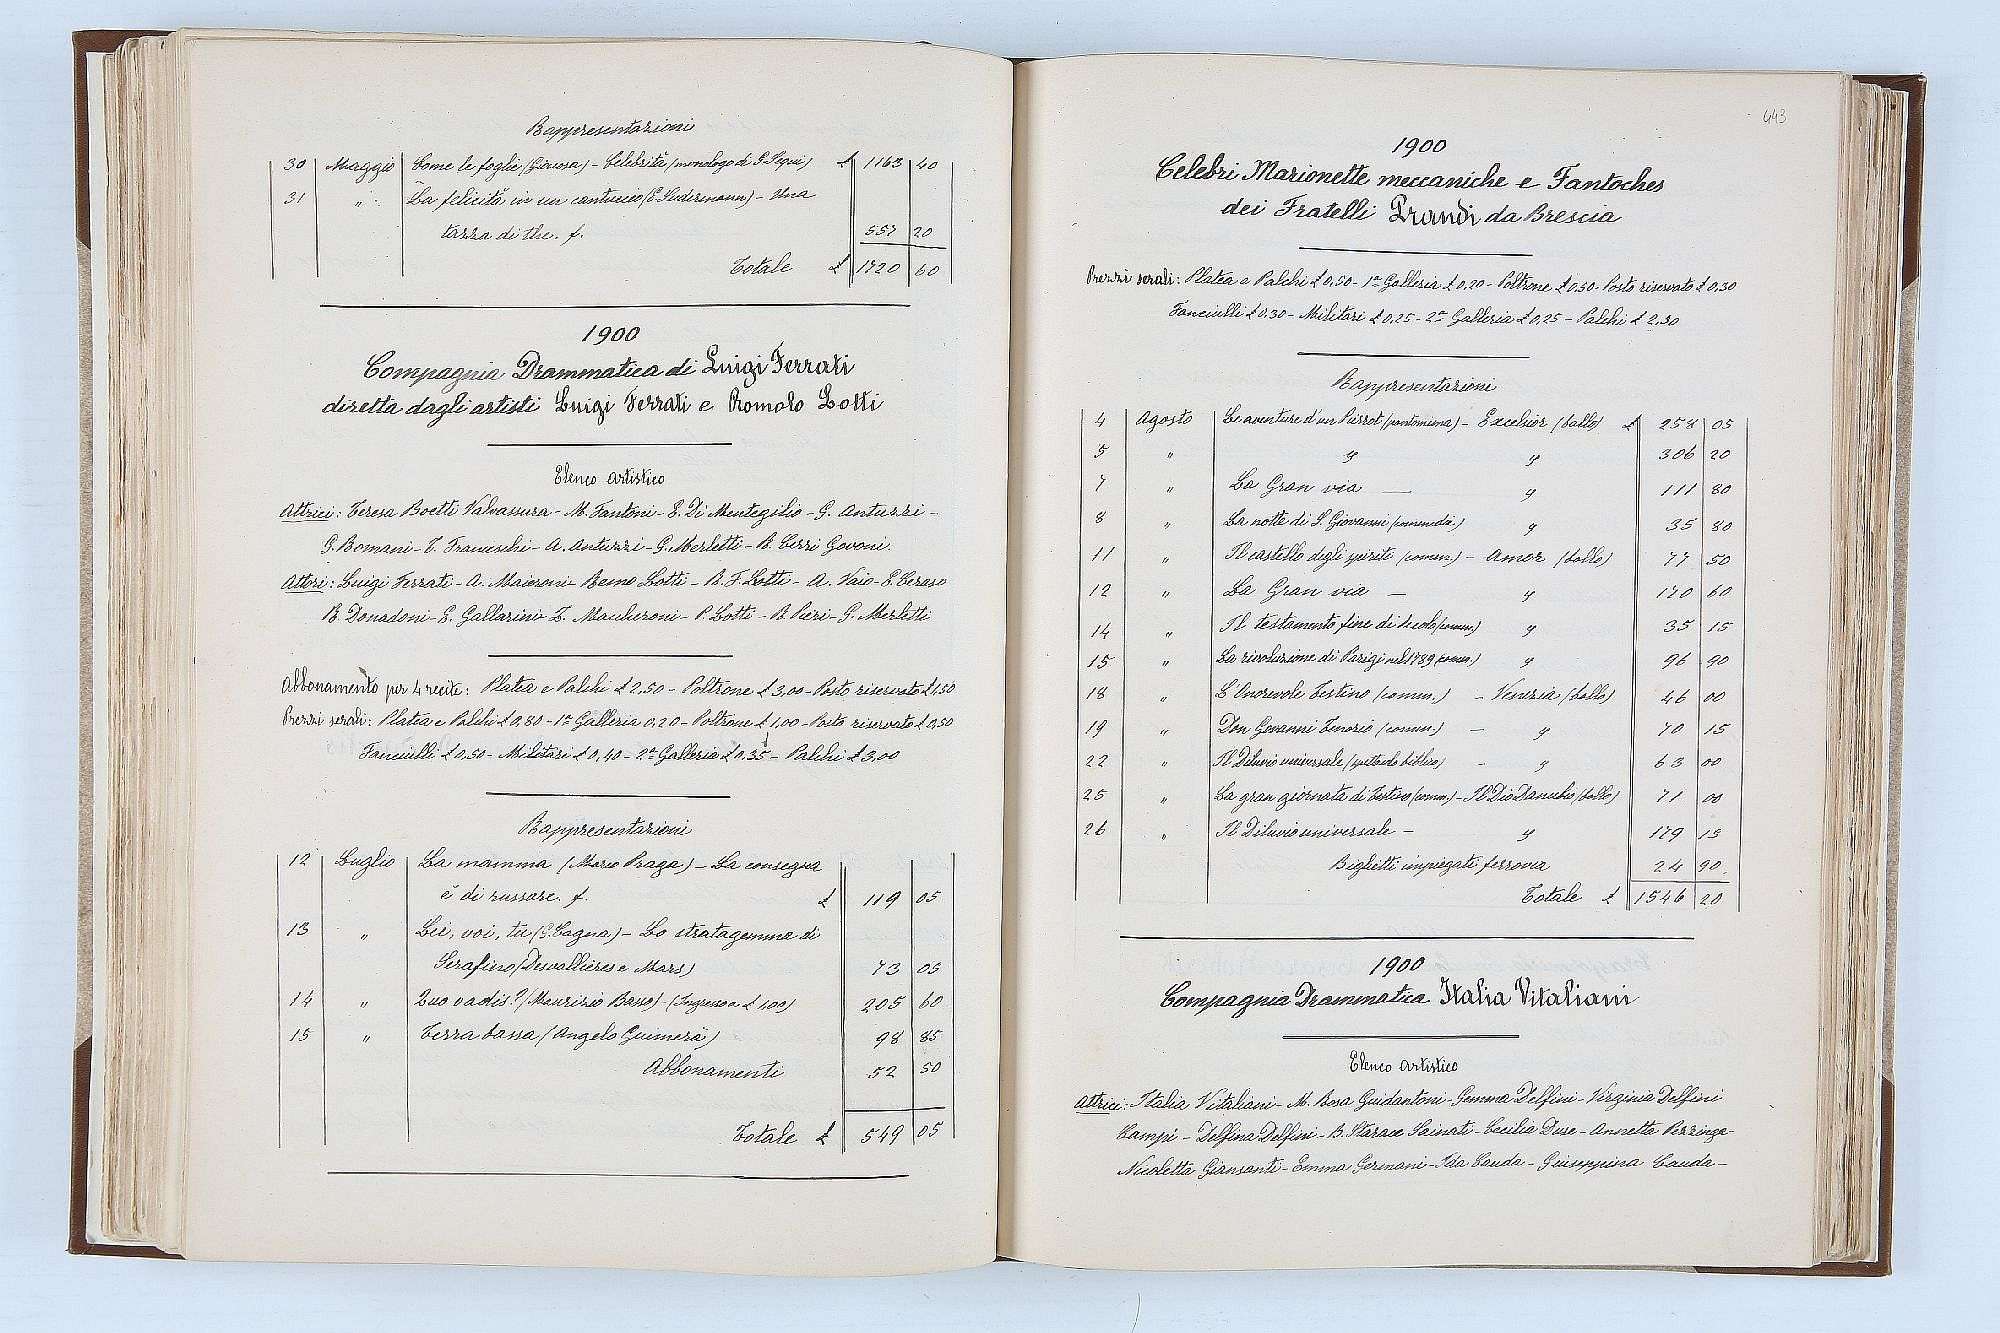 Rappresentazioni
30 Maggio Come le foglie (Giacosa) - Celebrità (monologo di G. ) £ 1163 40
31 " La felicità in un cantuccio (E. Sudermann) - Una
tazza di the. f. 557 20
Totale £ 1720 60
1900
Compagnia Drammatica di Luigi Ferrati
diretta dagli artisti Luigi Ferrati e Romolo Lotti
Elenco artistico
Attrici: Teresa Boetti Valvassura - M. Fantoni - E. Di Montegilio - G. Antuzzi -
G. Bomani - T. Franceschi - A. Antuzzi - G. Merletti - R. Cerri Govoni.
Attori: Luigi Ferrati - A. Maieroni - Remo Lotti - R. F. Lotti - A. Vaio - E. Ceraso
R. Donadoni - E. Gallarini - Z. Maucheroni - P. Lotti - R. Pieri - G. Merletti
Abbonamento per 4 recite: Platea e Palchi £ 2,50 - Poltrone £ 3,00 - Posto riservato £ 1,50
Prezzi serali: Platea e Palchi £ 0,80 - 1ª Galleria 0,20 - Poltrone £ 1,00 - Posto riservato £ 0,50
Fanciulli £ 0,50 - Militari £ 0,40 - 2ª Galleria £ 0,35 - Palchi £ 3,00
Rappresentazioni
12 Luglio La mamma (Marco Praga) - La consegna
è di russare. f. £ 119 05
13 " Lei, voi, tu (G. Cagna) - Lo stratagemma di
Serafino (Desvallières e Mars) 73 05
14 " Quo vadis? (Maurizio Basso) - (Ingresso a £ 1,00) 205 60
15 " Terra bassa (Angelo Guimerà) 98 85
Abbonamenti 52 50
Totale £ 549 05
443
1900
Celebri Marionette meccaniche e Fantoches
dei Fratelli Prandi da Brescia
Prezzi serali: Platea e Palchi £ 0,50 - 1ª Galleria £ 0,20 - Poltrone £ 0,50 - Posto riservato £ 0,30
Fanciulli £ 0,30 - Militari £ 0,25 - 2ª Galleria £ 0,25 - Palchi £ 2,30
Rappresentazioni
4 Agosto Le aventure d'un Pierrot (pantomima) - Excelsior (ballo) £ 258 05
5 " " " 306 20
7 " La Gran via — " 111 80
8 " La notte di S. Giovanni (commedia.) " 35 80
11 " Il castello degli spiriti (comm.) - Amor (ballo) 77 50
12 " La Gran via — " 170 60
14 " Il testamento fine di secolo (comm.) " 35 15
15 " La rivoluzione di Parigi nel 1789 (comm.) " 96 90
18 " L'Onorevole Testino (comm.) - Venezia (ballo) 46 00
19 " Don Govanni Tenorio (comm.) - " 70 15
22 " Il Diluvio universale (spettacolo biblico) - " 63 00
25 " La gran giornata di Testino (comm.) - Il Dio Danubio (ballo) 71 00
26 " Il Diluvio universale - " 179 15
Biglietti impiegati ferrovia 24 90.
Totale £ 1546 20
1900
Compagnia Drammatica Italia Vitaliani
Elenco artistico
Attrici: Italia Vitaliani - M. Rosa Guidantoni - Gemma Delfini - Virginia Delfini
Campi - Delfina Delfini - B. Starace Sainati - Cecilia Duse - Annetta Pezzinga -
Nicoletta Giansanti - Emma Germani - Ida Cauda - Giuseppina Cauda -